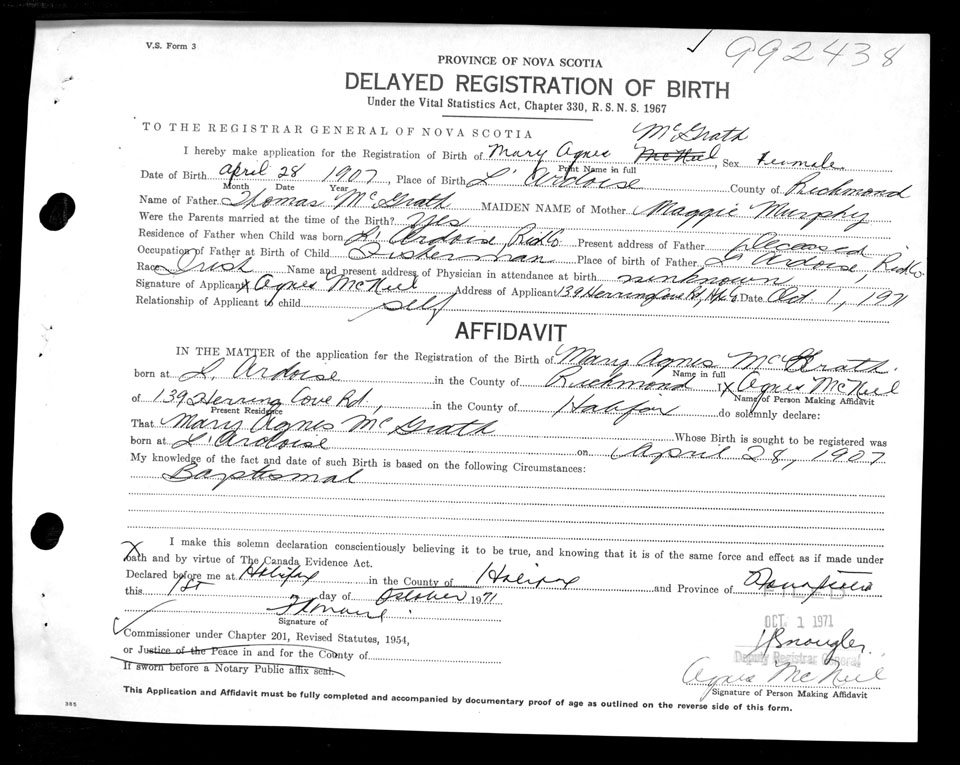 V.S. Form 3
✓ 992438
PROVINCE OF NOVA SCOTIA
DELAYED REGISTRATION OF BIRTH
Under the Vital Statistics Act, Chapter 330, R. S. N. S. 1967
TO THE REGISTRAR GENERAL OF NOVA SCOTIA
McGrath
I hereby make application for the Registration of Birth of Mary Agnes McNeil, Sex Female
Print Name in full
Date of Birth April 28 1907, Place of Birth L'Ardoise County of Richmond
Month Date Year
Name of Father Thomas McGrath MAIDEN NAME of Mother Maggie Murphy
Were the Parents married at the time of the Birth? Yes
Residence of Father when Child was born L'Ardoise, Rich Co Present address of Father Deceased
Occupation of Father at Birth of Child Fisherman Place of birth of Father L'Ardoise, Rich Co
Race Irish Name and present address of Physician in attendance at birth unknown
Signature of Applicant X Agnes McNeil Address of Applicant 139 Herring Cove Rd, Hfx Co. Date Oct. 1, 1971
Relationship of Applicant to child self
AFFIDAVIT
IN THE MATTER of the application for the Registration of the Birth of Mary Agnes McGrath.
Name in full
born at L'Ardoise in the County of Richmond I X Agnes McNeil
Name of Person Making Affidavit
of 139 Herring Cove Rd, in the County of Halifax do solemnly declare:
Present Residence
That Mary Agnes McGrath Whose Birth is sought to be registered was
born at L'Ardoise on April 28, 1907
My knowledge of the fact and date of such Birth is based on the following Circumstances:
Baptismal
I make this solemn declaration conscientiously believing it to be true, and knowing that it is of the same force and effect as if made under
X oath and by virtue of The Canada Evidence Act.
Declared before me at Halifax in the County of Halifax and Province of Nova Scotia
this 1st day of October 1971
FILED
OCT. 1 1971
Signature of
✓ Commissioner under Chapter 201, Revised Statutes, 1954,
or Justice of the Peace in and for the County of
Deputy Registrar General
If sworn before a Notary Public affix seal.
Agnes McNeil
Signature of Person Making Affidavit
This Application and Affidavit must be fully completed and accompanied by documentary proof of age as outlined on the reverse side of this form.
385